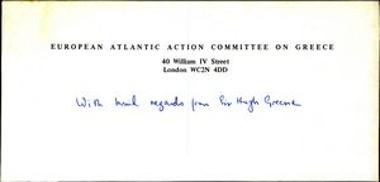 EUROPEAN ATLANTIC ACTION COMMITTEE ON GREECE
40 William IV Street
London WC2N 4DD
With kind regards from Sir Hugh Greene